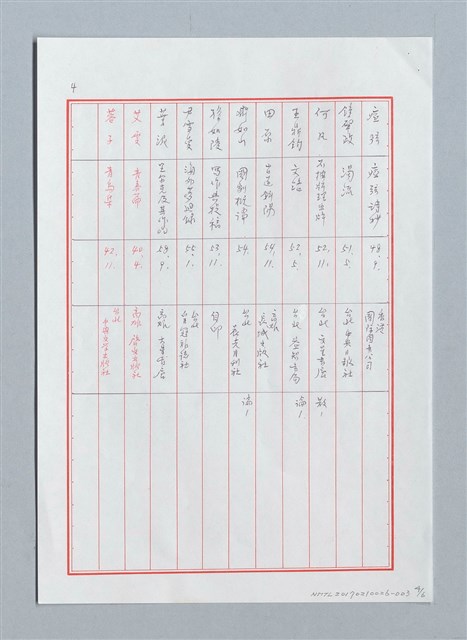 4
瘂弦 瘂弦詩抄 48. 9. 香港 國際圖書公司
鍾梅音 51. 5. 台北 中央日報社
何凡 不按牌理出牌 52. 11. 台北 文星書店 散/
王鼎鈞 文路 52. 5. 台北 益智書局 論/
田原 古道斜陽 54. 11. 高雄 長城出版社
齊如山 國劇概論 54. 台北 長光月刊社 論/
穆如陵 寫作與投稿 53. 11. 自印
尹雪曼 海外夢迴錄 55. 1. 台北 皇冠雜誌社
葉泥 59. 9. 高雄 大業書店
艾雯 青春篇 40. 4. 高雄 啓文出版社
蓉子 青鳥集 42. 11. 台北 中興文學出版社
NMTL20170210006-003
4/6